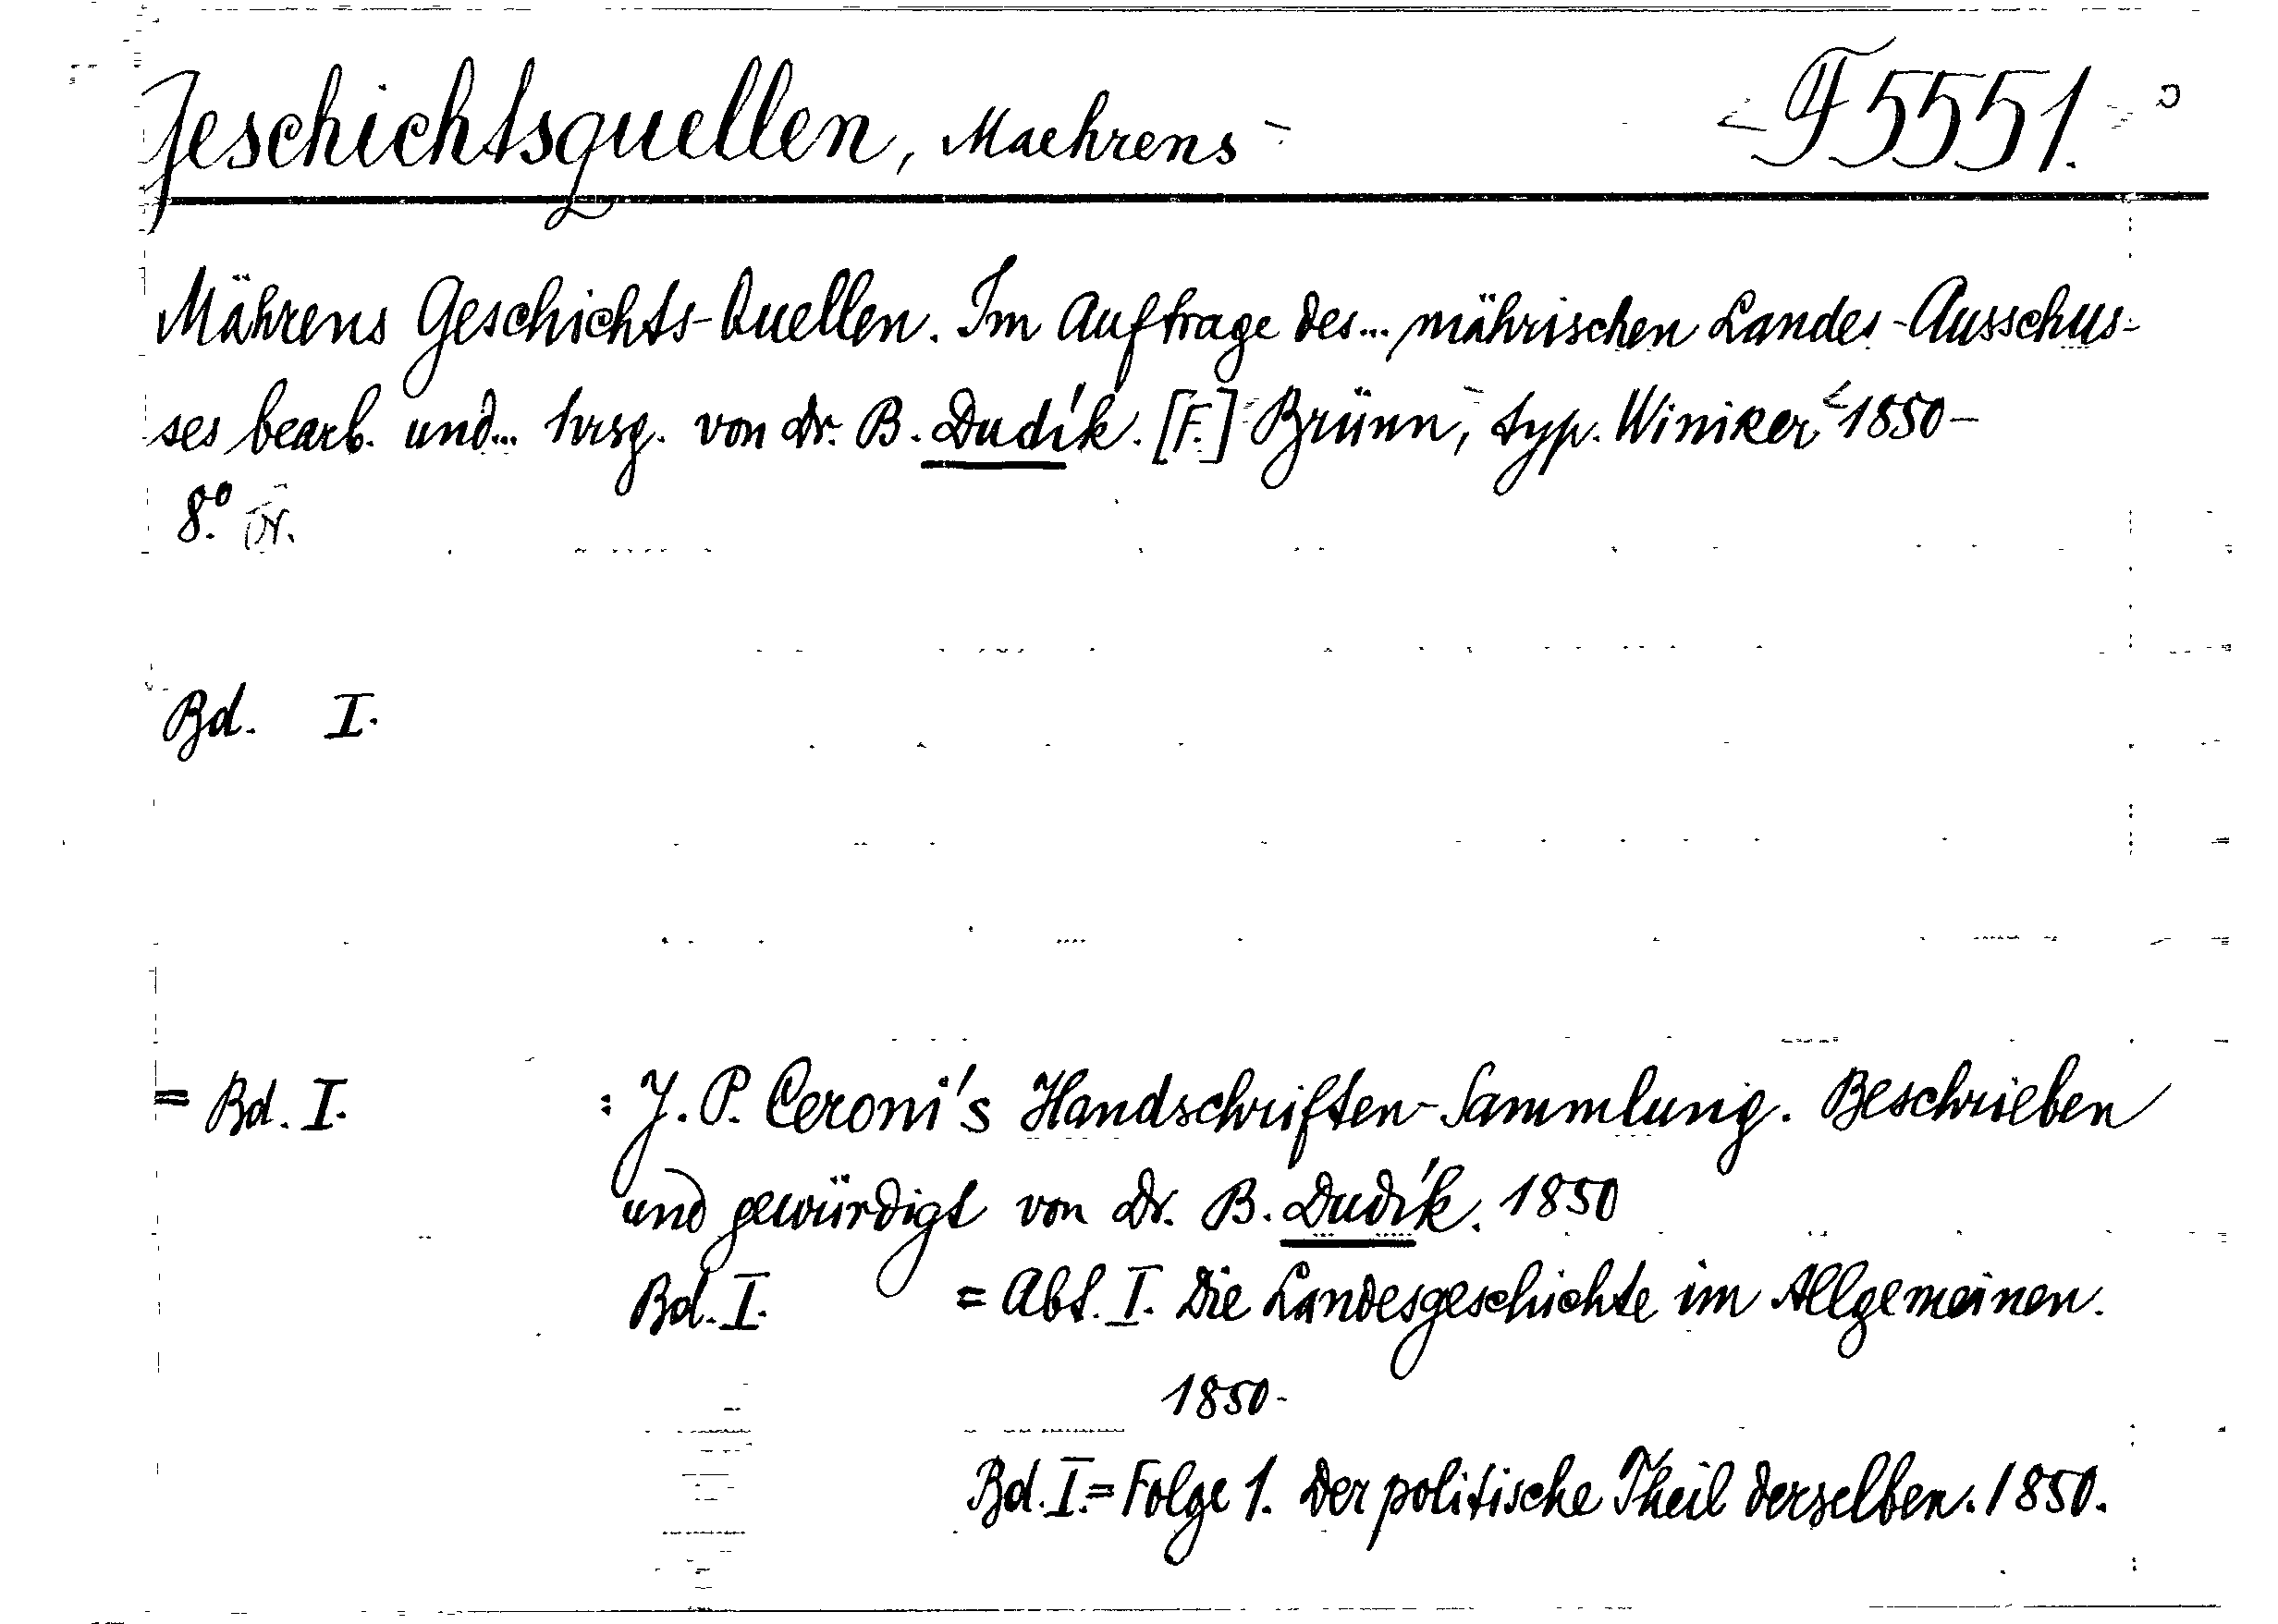 Geschichtsquellen, Maehrens
F 5551.
Mährens Geschichts-Quellen. Im Auftrage des... mährischen Landes-Ausschus-
ses bearb. und... hrsg. von Dr. B. Dudík. [F.] Brünn, typ. Winiker 1850-
8.°
Bd. I.
= Bd. I. : J. P. Ceroni's Handschriften-Sammlung. Beschrieben
und gewürdigt von Dr. B. Dudík. 1850
Bd. I. = Abt. I. Die Landesgeschichte im Allgemeinen.
1850-
Bd. I. = Folge 1. Der politische Theil derselben. 1850.